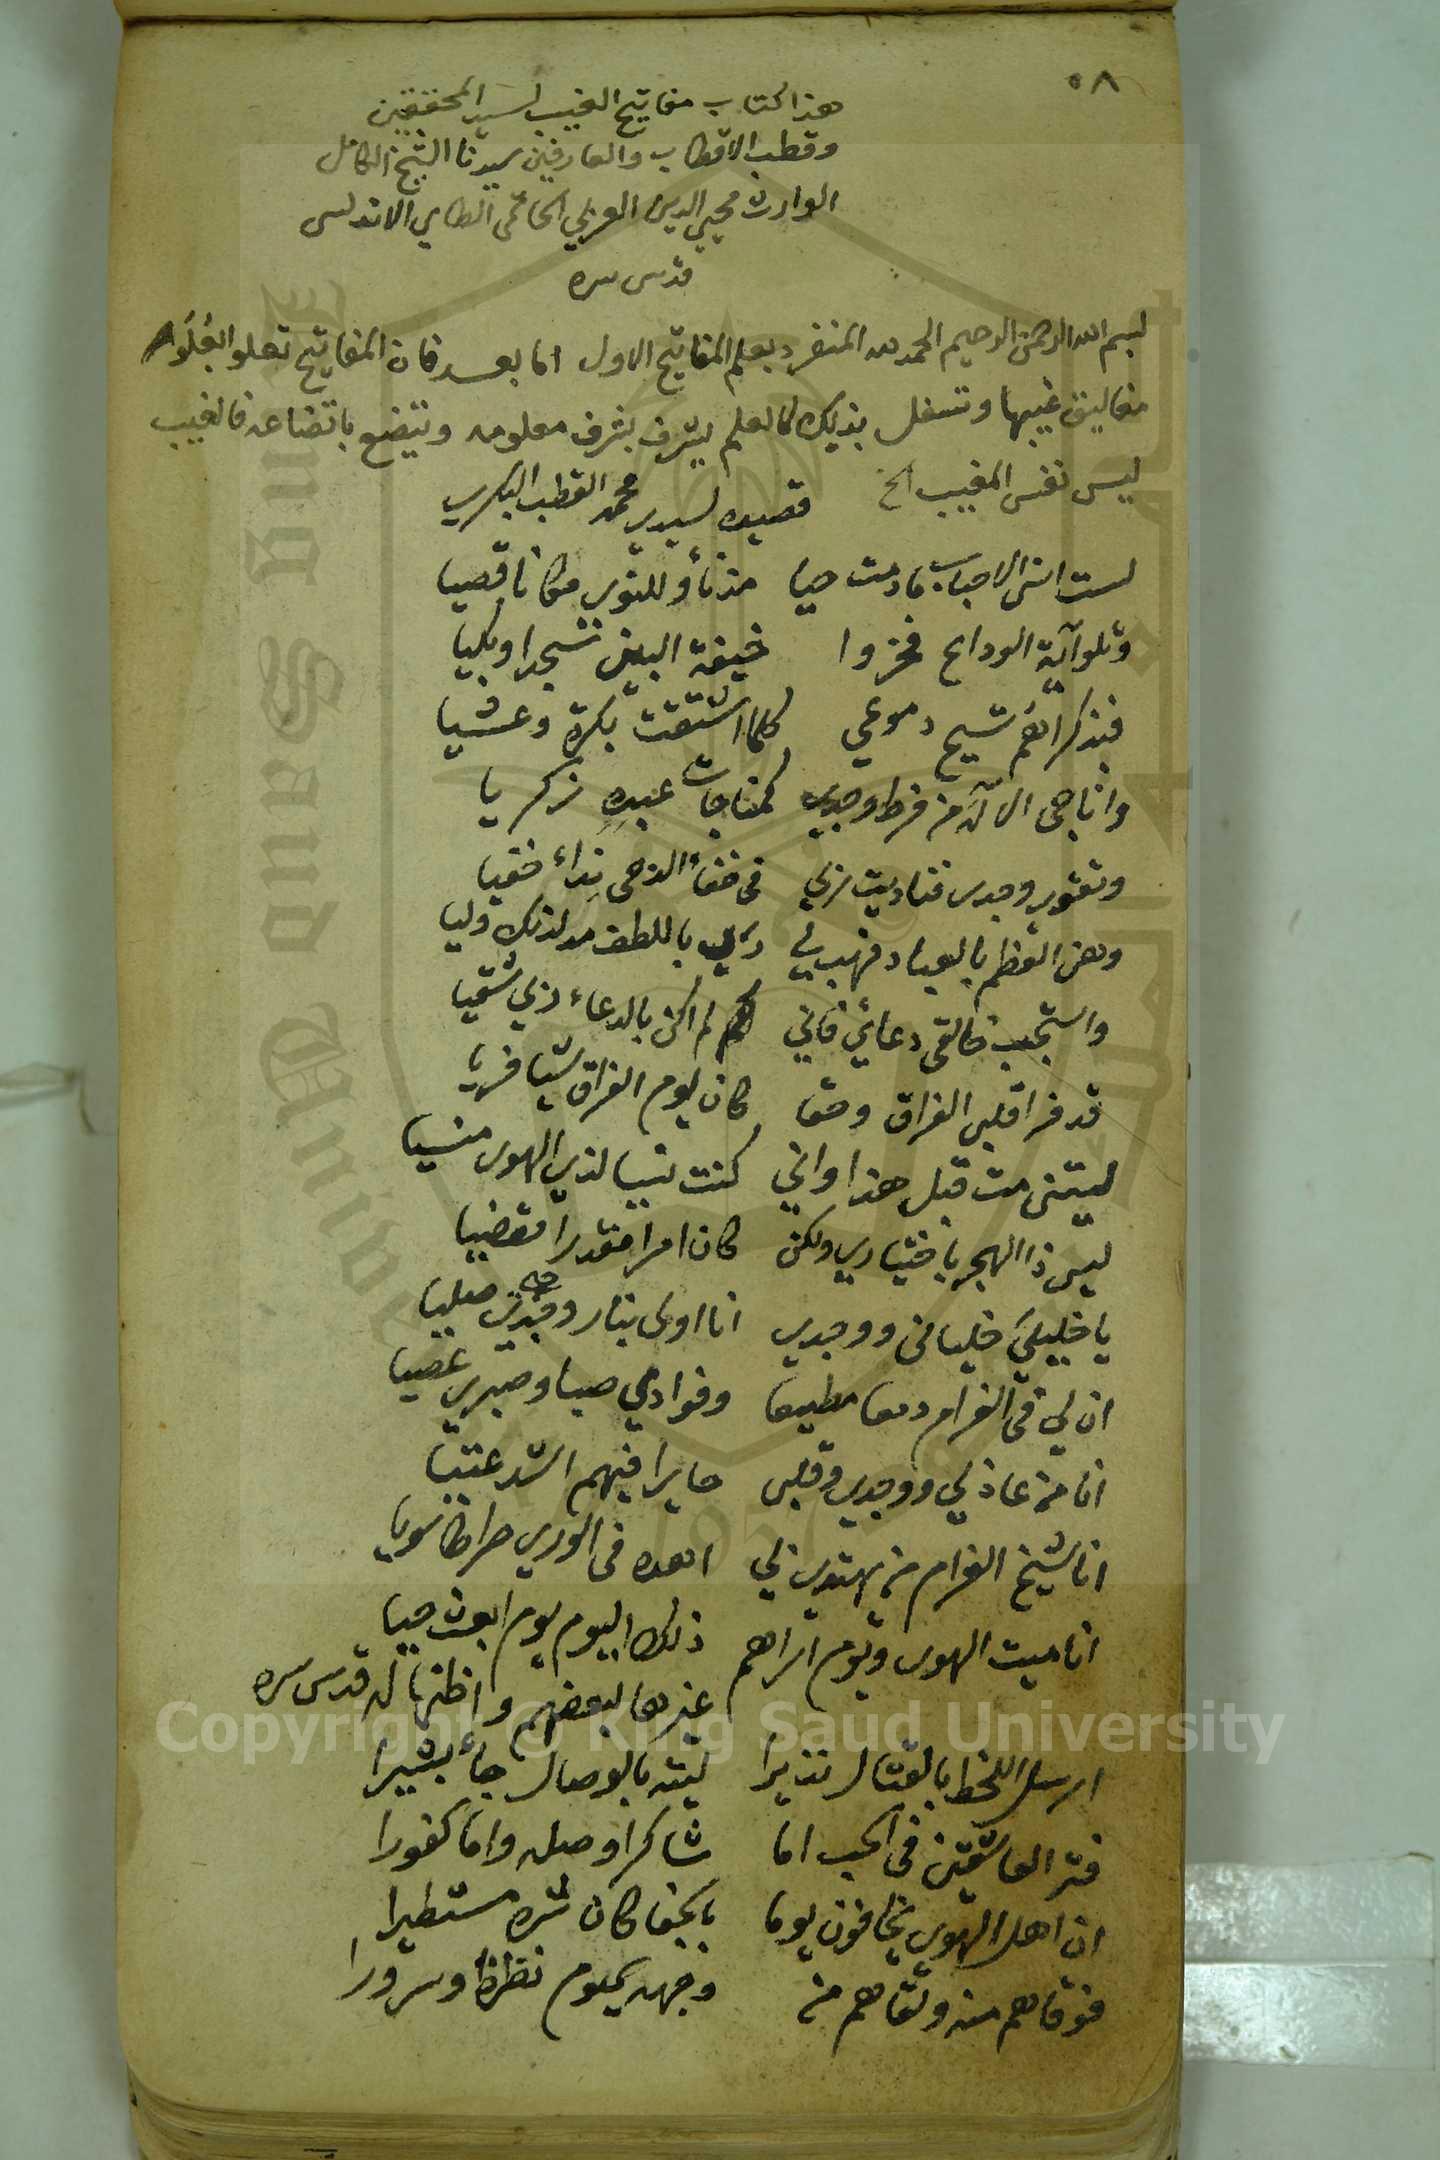 ٥٨
هذا كتاب مفاتيح الغيب لسيد المحققين
وقطب الاقطاب والعارفين سيدنا الشيخ الكامل
الوارث محيي الدين العربي الحاتمي الطاي الاندلسي
قدس سره
بسم الله الرحمن الرحيم الحمد لله المنفرد بعلم المفاتيح الاول اما بعد فان المفاتيح تعلو العُلُو
مغاليق غيبها وتسفل بذلك كالعلم يشرف بشرف معلومه ويتضع باتضاعه فالغيب
ليس نفس المغيب الخ قصيده لسيدي محمد القطب البكري
لست انسى الاحباب مادمت حيا مذ نأو للنوى مكانا قصيا
وتلو آية الوداع فخروا خيفة البين سجدا وبكيا
فبذكراهم تسيح دموعي كلما اشتقت بكرة وعشيا
واناجي الاله من فرط وجدي كمناجات عبده زكريا
وتعتور وجدى فناديت ربي في خفاء الدجى نداء خفيا
وهن العظم بالعباد فهب لي رب باللطف من لدنك وليا
واستجب خالقي دعائي فاني لم اكن بالدعاء ربي شقيا
قد فرا قلبي الفراق وحقا كان يوم الفراق شيا فريا
ليتني مت قبل هذا واني كنت نسيا لذي الهوى منسيا
ليس ذا الهجر باختياري ولكن كان امرا مقدرا مقضيا
يا خليلي خليانى ووجدي انا اولى بنار وجدي صليا
ان لي في الغرام دمعا مطيعا وفوادي صبا وصبري عصيا
انا من عاذلي ووجدي وقلبي حايرا فيهم اشد عتيا
انا شيخ الغرام من يهتدي بي اهده في الورى صراطا سويا
انا ميت الهوى ويوم اراهم ذلك اليوم يوم ابعث حيا
غيرها لبعضهم واظنها له قدس سره
ارسل اللحظ بالقتال نذيرا ليته بالوصال جاء بشيرا
فتر العاشقين في الحب اما شاكرا وصله واما كفورا
ان اهل الهوى يخافون يوما بالجفا كان شره مستطيرا
فوقاهم منه ولقاهم من وجهه اليوم نظرة وسرورا
Copyright © King Saud University
King Saud University
1957